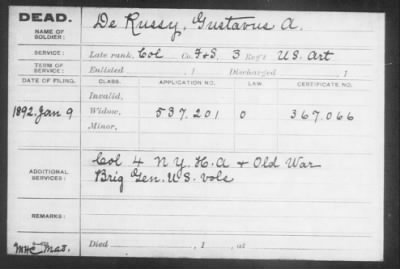 DEAD.
NAME OF SOLDIER: De Russy, Gustavus A.
SERVICE: Late rank, Col Co. F&S, 3 Reg't U.S. Art
TERM OF SERVICE: Enlisted , 1 Discharged , 1
DATE OF FILING. CLASS. APPLICATION NO. LAW. CERTIFICATE NO.
Invalid,
1892, Jan 9 Widow, 537.201 0 367.066
Minor,
Col 4 N.Y. H.A + Old War
ADDITIONAL SERVICES: Brig Gen. U.S. vols
REMARKS:
Died , 1 , at